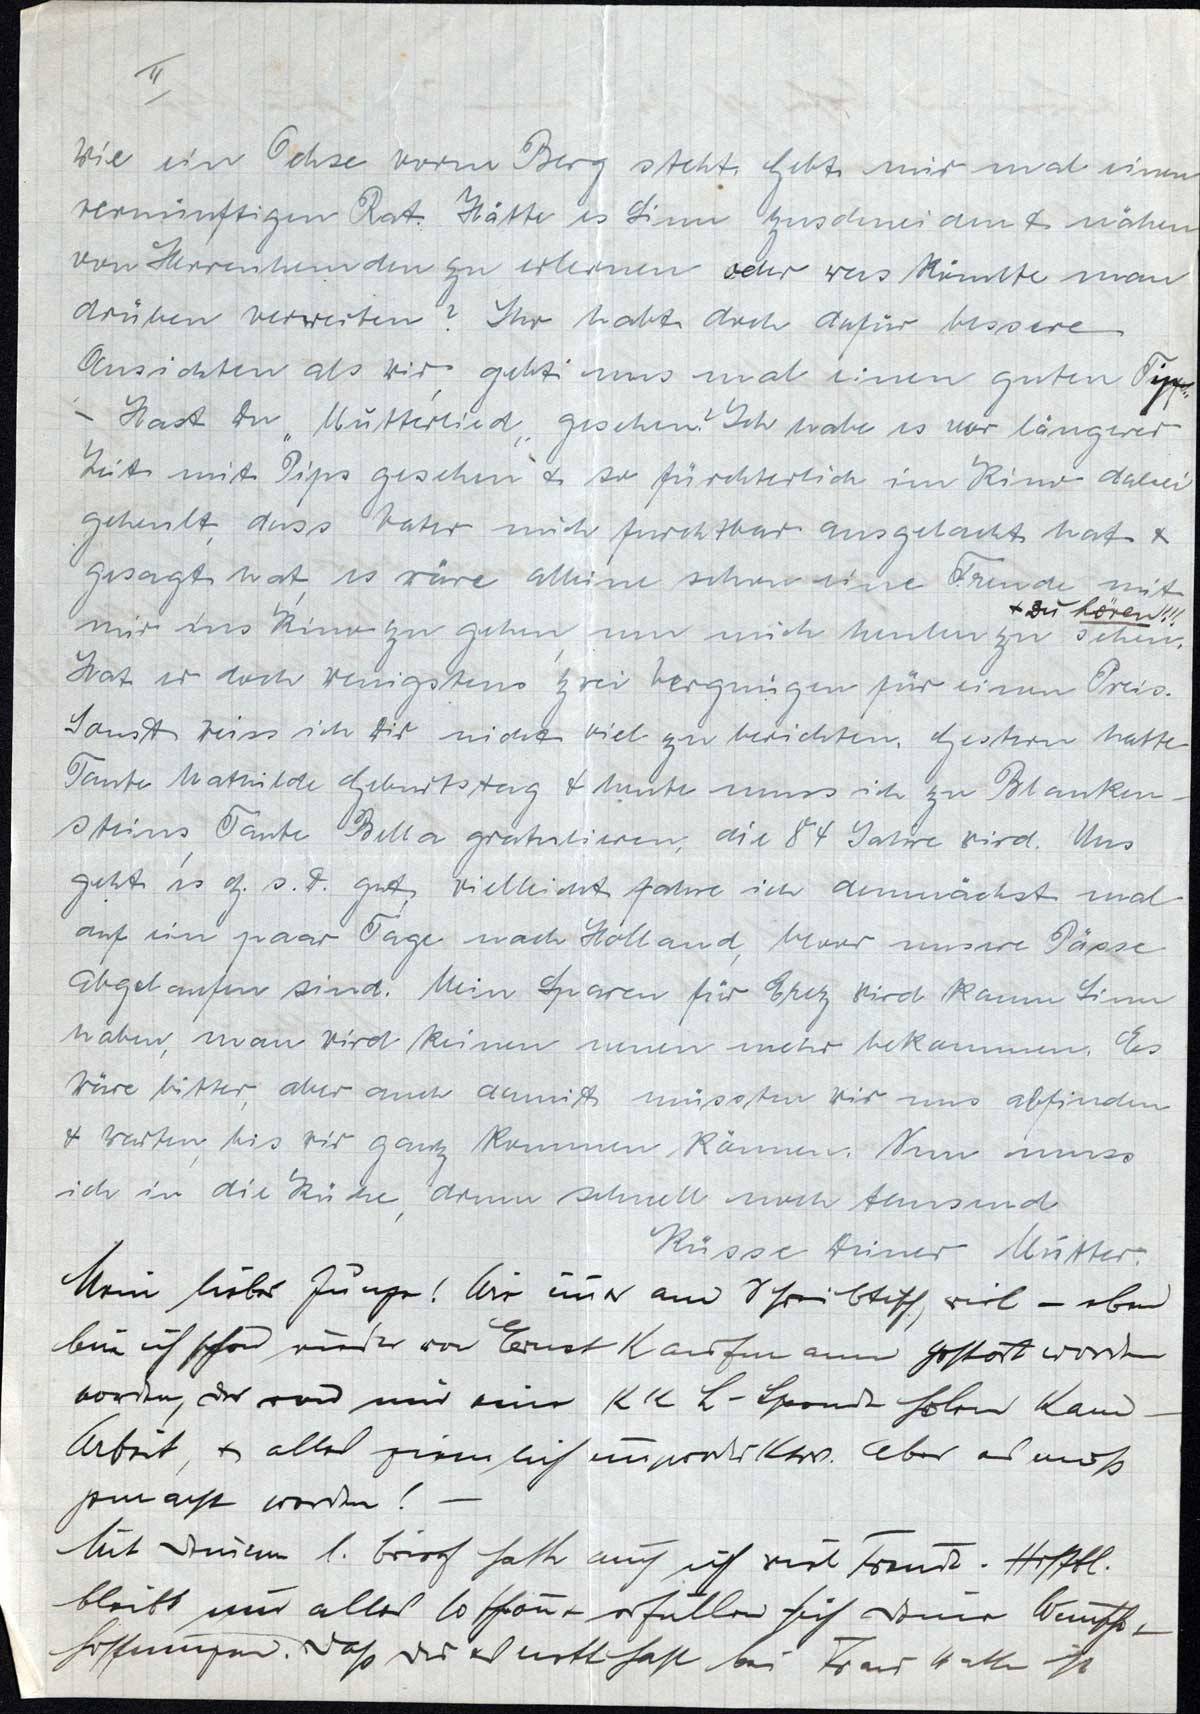 II
wie ein Ochse vorm Berg steht. Gebt mir mal einen
vernünftigen Rat. Hätte es Sinn zuschneiden & nähen
von Herrenhemden zu erlernen oder was könnte man
drüben verwerten? Ihr habt doch dafür bessere
Ansichten als wir, gebt uns mal einen guten Tip.
- Hast Du „Mutterlied" gesehen? Ich habe es vor längerer
Zeit mit Pips gesehen & so fürchterlich im Kino dabei
geheult, dass Vater mich furchtbar ausgelacht hat &
gesagt hat, es wäre alleine schon eine Freude mit
+ zu hören!!!
mir ins Kino zu gehen, um mich heulen zu sehen.
Hat er doch wenigstens zwei Vergnügen für einen Preis.
Sonst weiss ich Dir nicht viel zu berichten. Gestern hatte
Tante Mathilde Geburtstag & heute muss ich zu Blanken-
steins, Tante Bella gratulieren, die 84 Jahre wird. Uns
geht es G. s. D. gut, vielleicht fahre ich demnächst mal
auf ein paar Tage nach Holland, bevor unsere Pässe
abgelaufen sind. Mein Sparen für Erez wird kaum Sinn
haben, man wird keinen neuen mehr bekommen. Es
wäre bitter, aber auch damit müssten wir uns abfinden
& warten, bis wir ganz kommen können. Nun muss
ich in die Küche, drum schnell noch tausend
Küsse Deiner Mutter.
Mein lieber Junge! Wie immer am Schreibtisch, viel - eben
bin ich schon wieder von Ernst Kaufmann gestört worden
worden, der und mir eine KKL-Spende holen kam -
Arbeit, & alles ziemlich unproduktiv. Aber es muß
gemacht werden! -
Mit Deinem l. Brief hatte auch ich viel Freude. Hofftl.
bleibt nun alles so schön & erfüllen sich Deine Wunsch-
hoffnungen. Daß Du es netthaft bei Frau ist